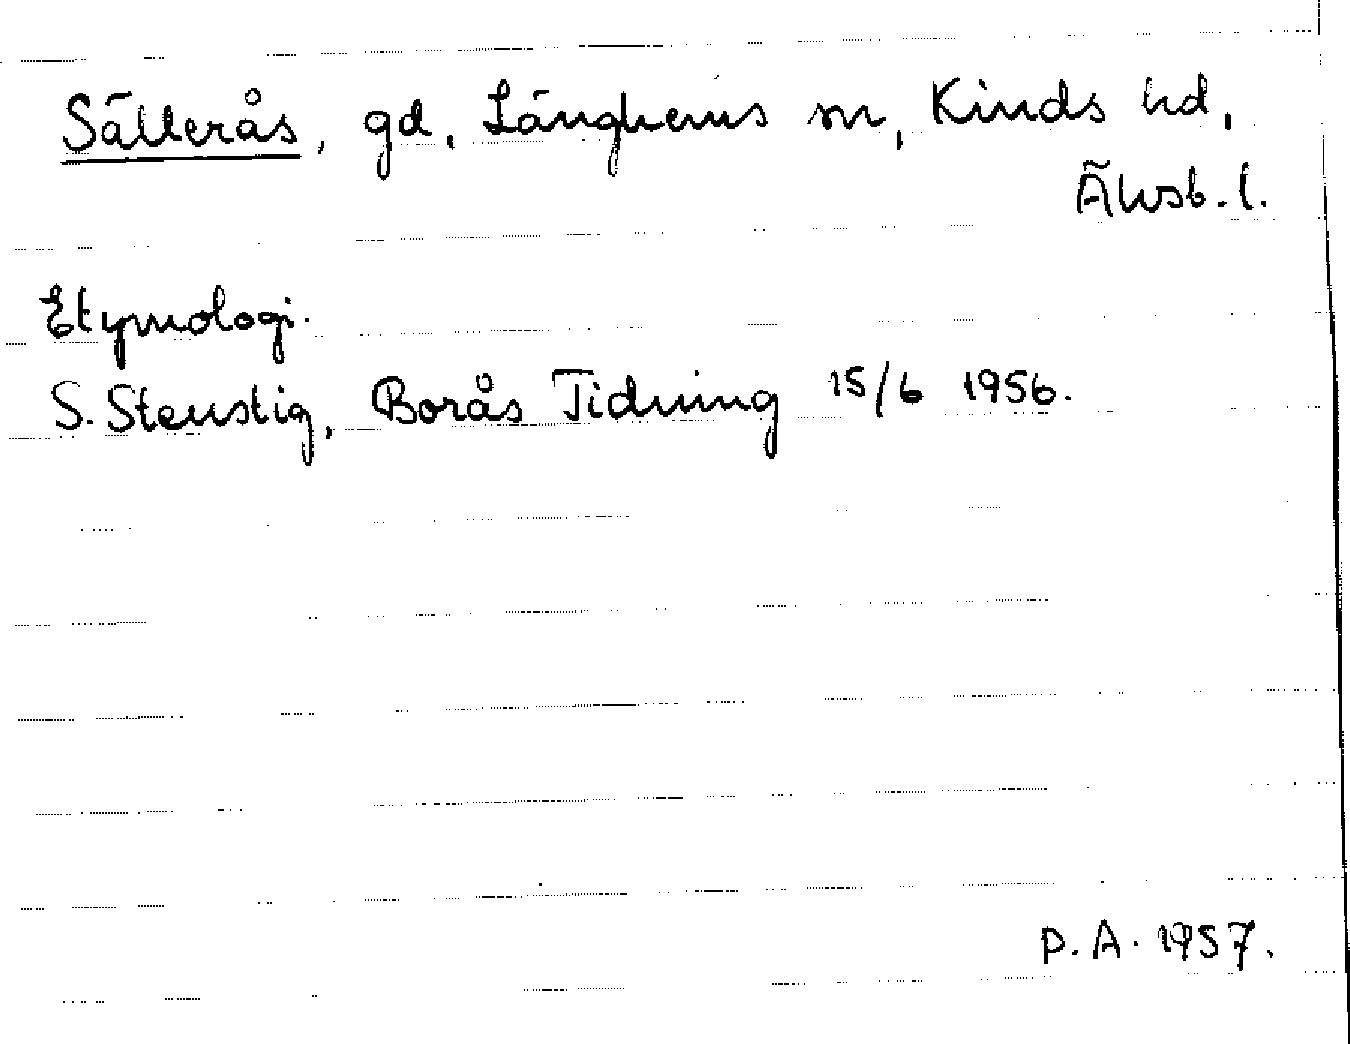 Sätterås, gd, Länghems sn, Kinds hd,
Älvsb. l.
Etymologi.
S. Stenstig, Borås Tidning 15/6 1956.
P. A. 1957.